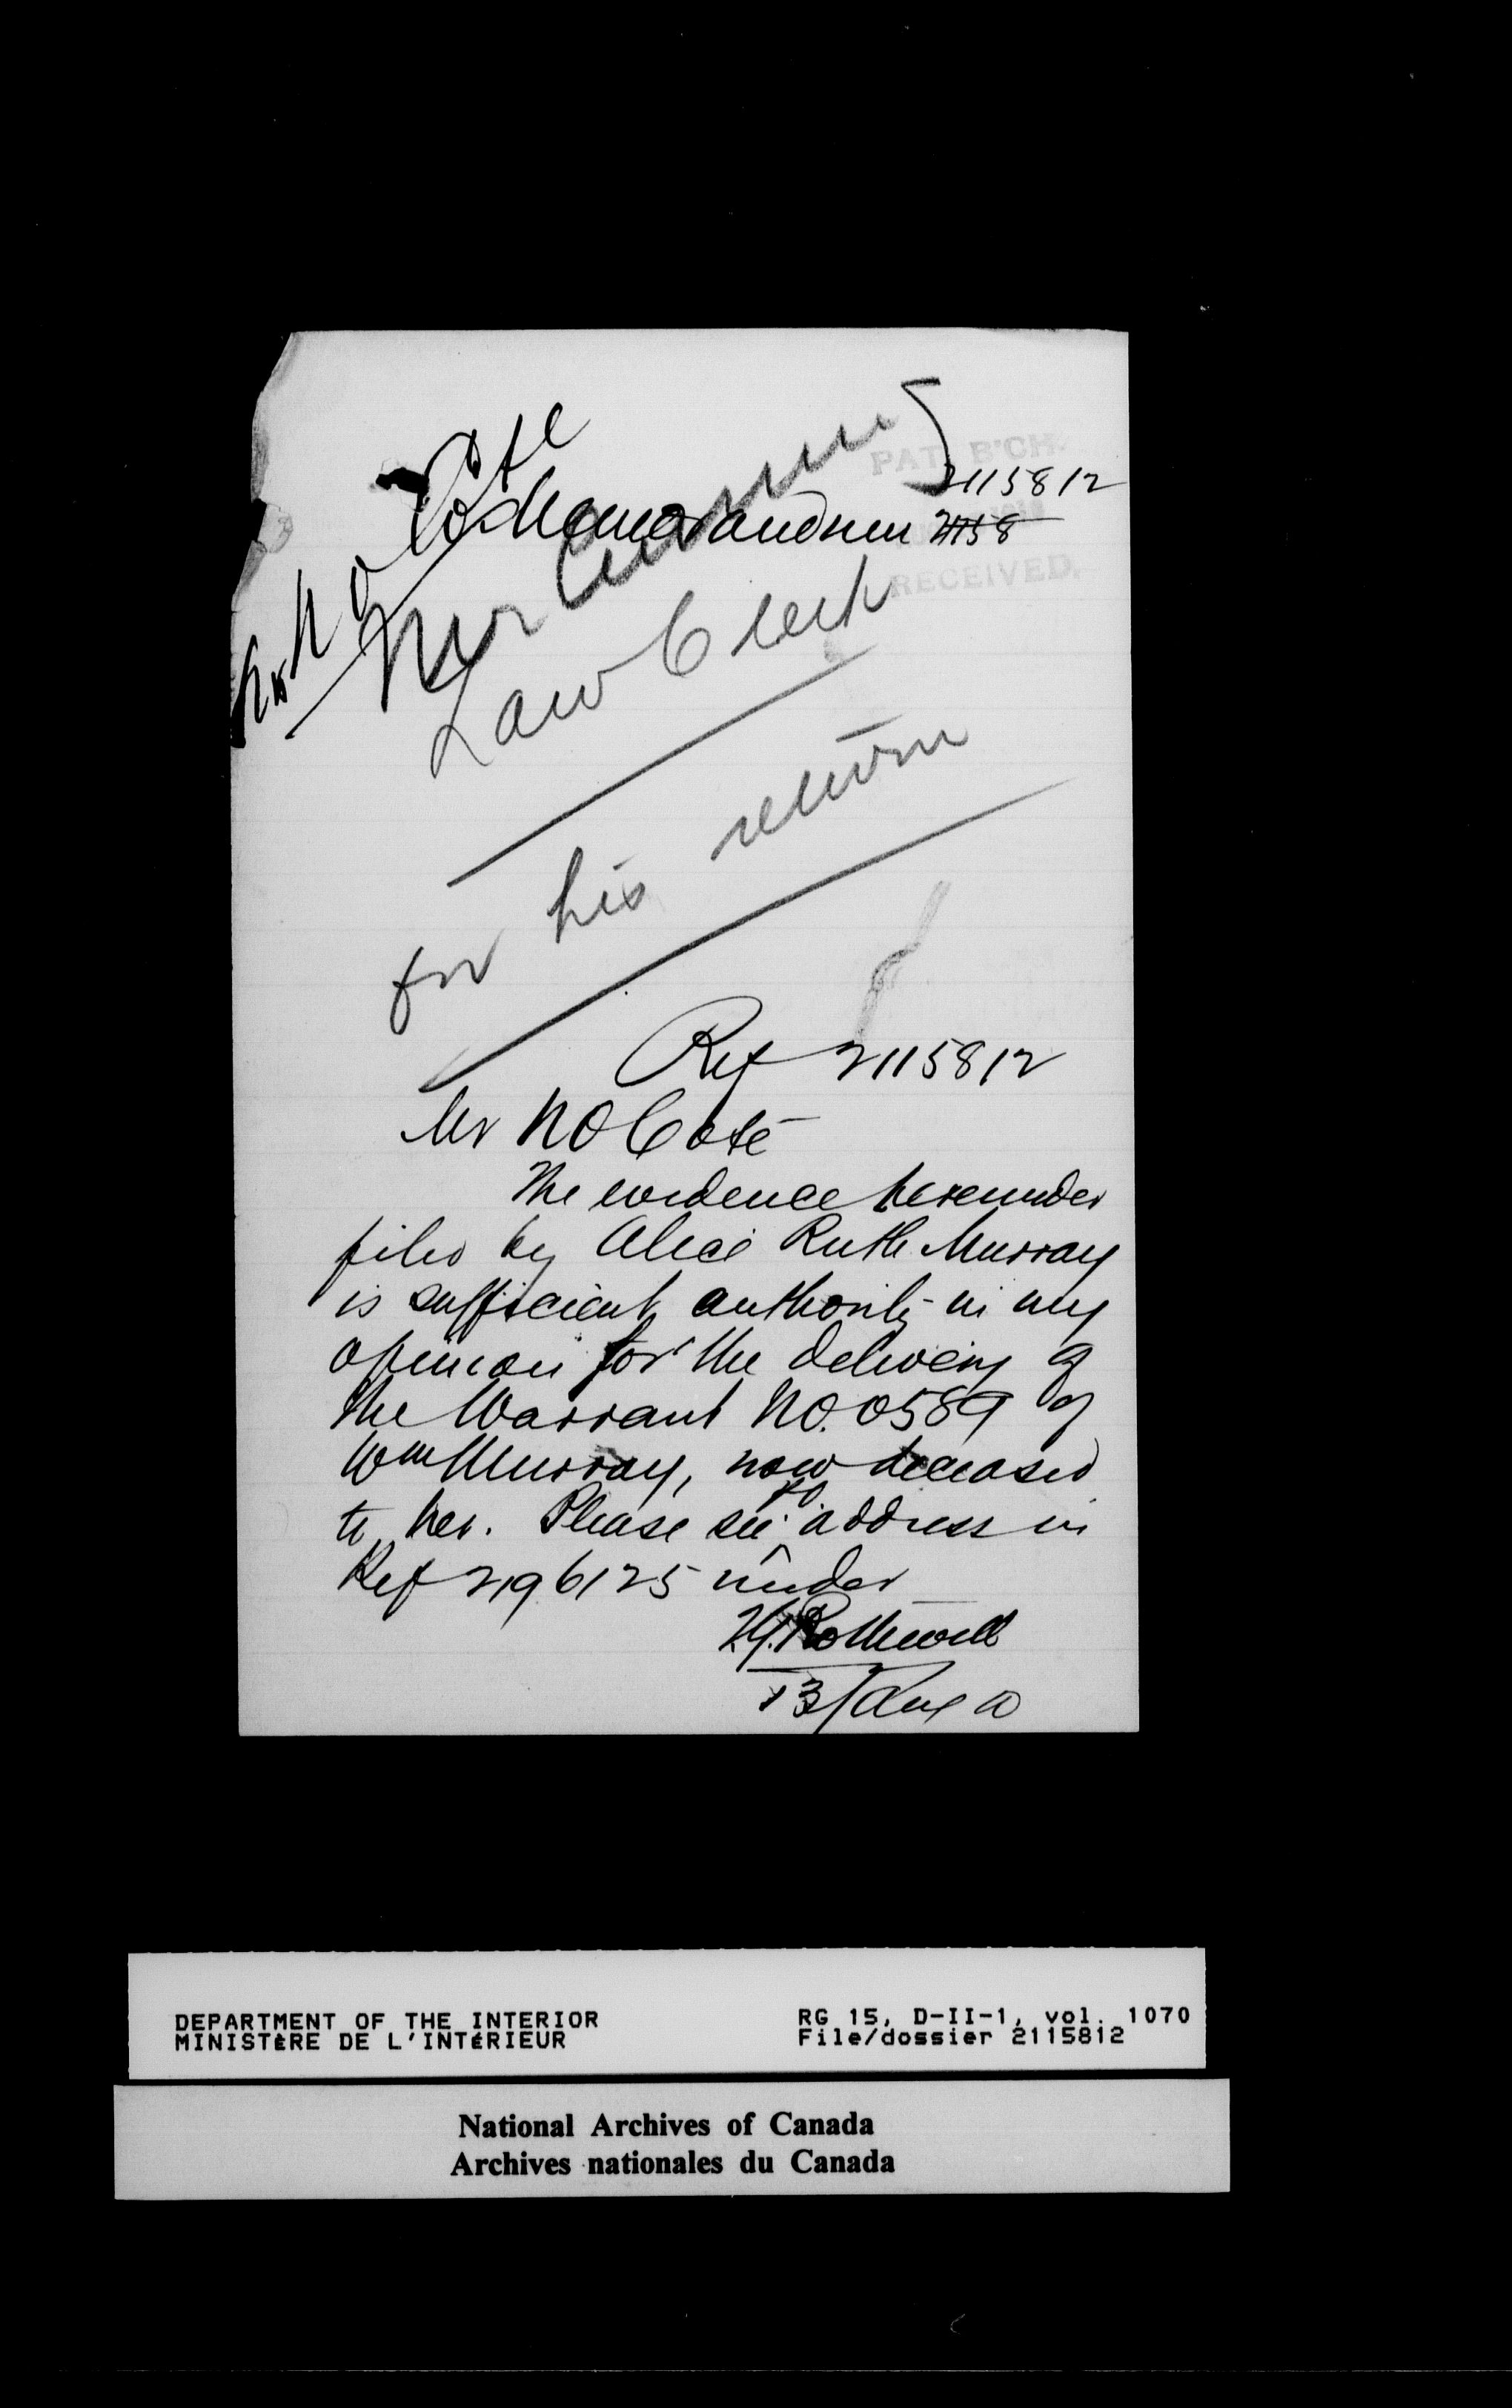 Mr N O Côté
Memorandum 2115812
2115 8
PAT. B'CH.
RECEIVED.
Mr
Law Clerk
for his return
Ref 2115812
Mr N O Coté
The evidence hereunder
filed by Alice Ruth Murray
is sufficient authority in my
opinion for the delivery of
the Warrant No. 0589 of
Wm Murray, now deceased
to her. Please see to address in
Ref 2196125 under
Rothwell
13/Aug 10
DEPARTMENT OF THE INTERIOR
MINISTÈRE DE L'INTÉRIEUR
RG 15, D-II-1, vol. 1070
File/dossier 2115812
National Archives of Canada
Archives nationales du Canada